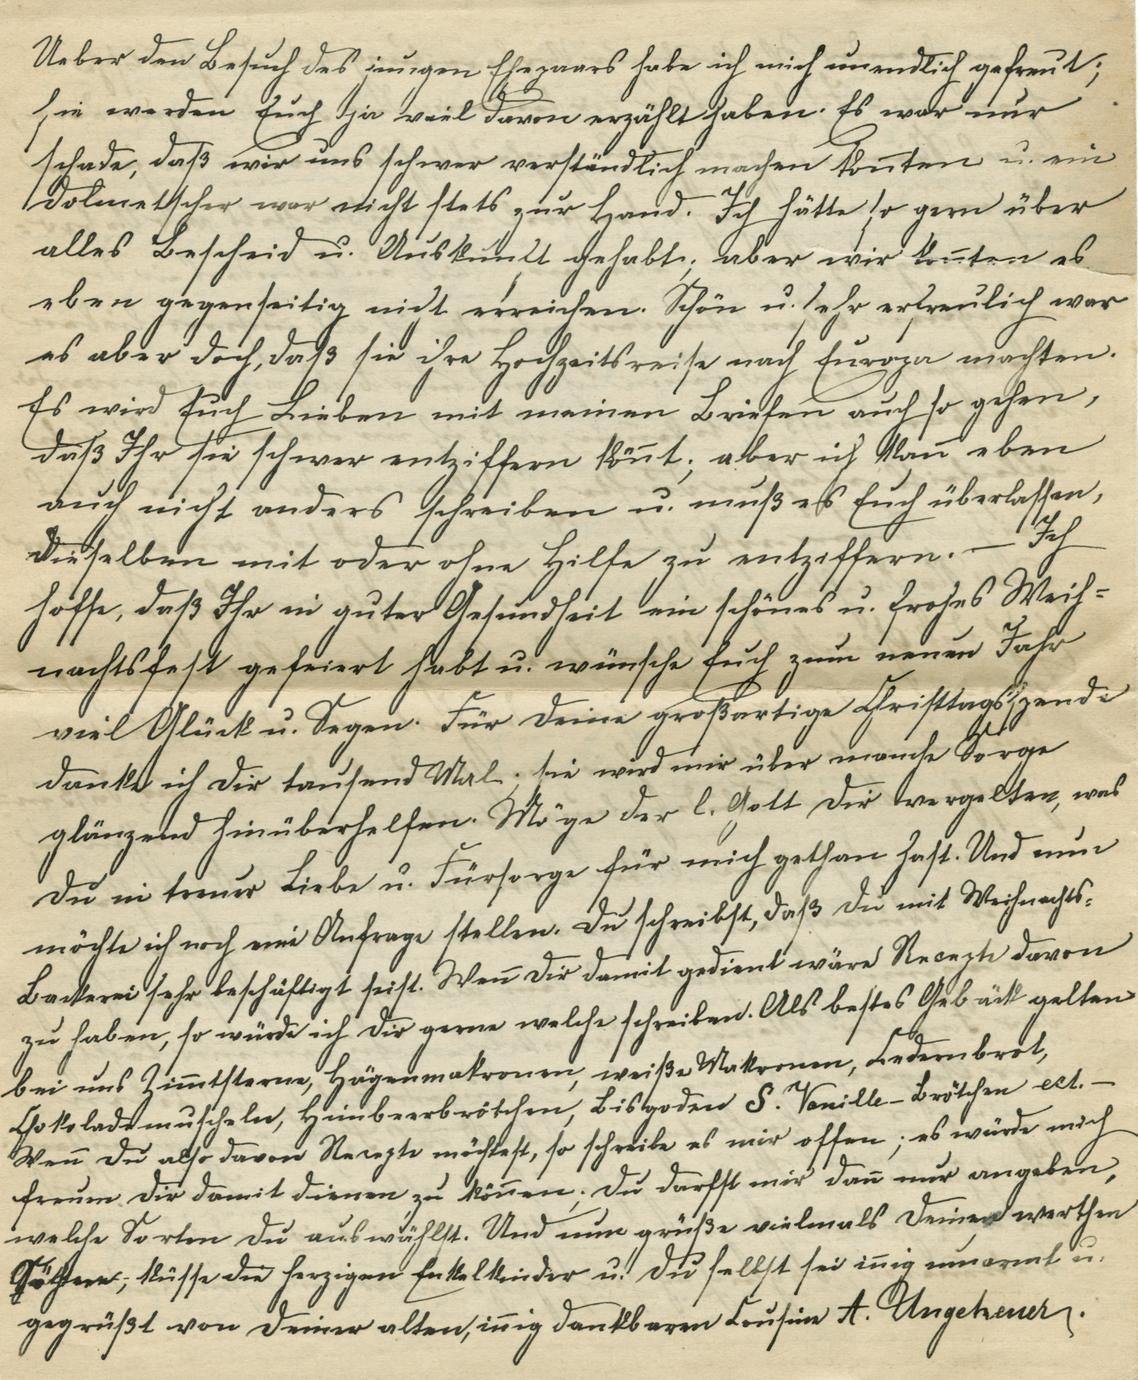 Ueber den Besuch des jungen Ehepaars habe ich mich unendlich gefreut;
sie werden Euch ja viel davon erzählt haben. Es war nur
schade, daß wir uns schwer verständlich machen kon̄ten u. ein
Dolmetscher war nicht stets zur Hand. Ich hätte so gern über
alles Bescheid u. Auskunft gehabt; aber wir kon̄ten es
eben gegenseitig nicht erreichen. Schön u. sehr erfreulich war
es aber doch, daß sie ihre Hochzeitsreise nach Europa machten.
Es wird Euch Lieben mit meinen Briefen auch so gehen,
daß Ihr sie schwer entziffern kön̄t; aber ich kan̄ eben
auch nicht anders schreiben u. muß es Euch überlassen,
dieselben mit oder ohne Hilfe zu entziffern. — Ich
hoffe, daß Ihr in guter Gesundheit ein schönes u. frohes Weih=
nachtsfest gefeiert habt u. wünsche Euch zum neuen Jahr
viel Glück u. Segen. Für Deine großartige Christtagsspende
danke ich Dir tausend Mal; sie wird mir über manche Sorge
glänzend hinüberhelfen. Möge der l. Gott Dir vergelten, was
Du in treuer Liebe u. Fürsorge für mich gethan hast. Und nun
möchte ich noch eine Anfrage stellen. Du schreibst, daß Du mit Weihnachts=
Backerei sehr beschäftigt seist. Wen̄ Dir damit gedient wäre Recepte davon
zu haben, so würde ich Dir gerne welche schreiben. Als bestes Gebäck gelten
bei uns Zimmtsterne, Hägenmakronen, weiße Makronen, Ledernbrot,
Chokolademuscheln, Himbeerbrötchen, Bisgoden S. Vanille-Brötchen ect. —
Wen̄ Du also davon Recepte möchtest, so schreibe es mir offen; es würde mich
freuen Dir damit dienen zu kön̄en; Du darfst mir dan̄ nur angeben,
welche Sorten Du auswählst. Und nun grüße vielmals Deinen werthen
küsse die herzigen Enkelkinder u. Du selbst sei in̄ig umarmt u.
gegrüßt von Deiner alten, in̄ig dankbaren Cousine A. Ungeheuer.